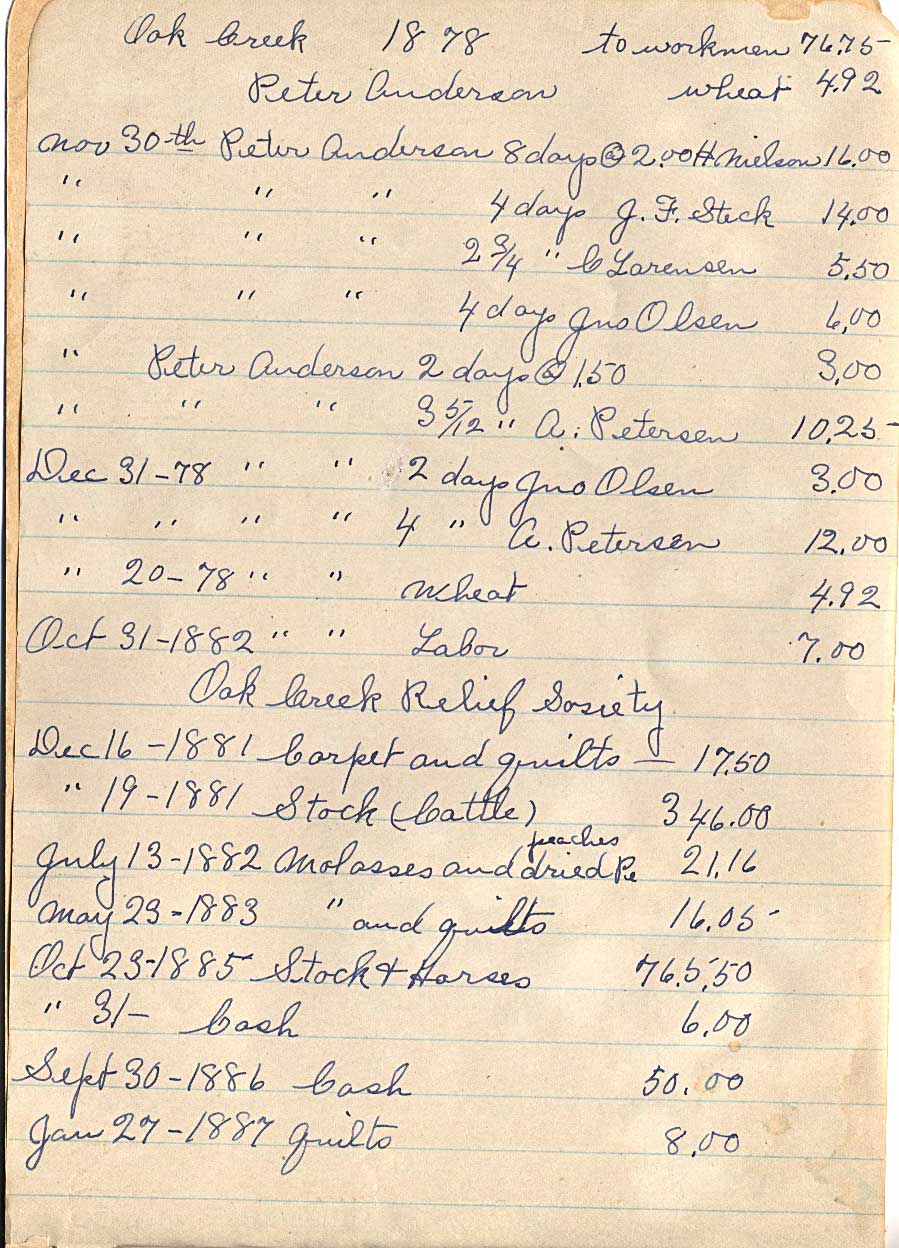 Oak Creek 1878 to workmen 76.75
Peter Anderson wheat 4.92
Nov 30th Peter Anderson 8 days @ 2.00 H Nielson 16.00
" " " 4 days J. F. Steck 14.00
" " " 2 3/4 " C Lorensen 5.50
" " " 4 days Jno Olsen 6.00
" Peter Anderson 2 days @ 1.50 3.00
" " " 3 5/12 " A. Petersen 10.25
Dec 31-78 " " 2 days Jno Olsen 3.00
" " " " 4 " A. Petersen 12.00
" 20-78 " " Wheat 4.92
Oct 31-1882 " " Labor 7.00
Oak Creek Relief Sosiety
Dec 16-1881 Carpet and quilts — 17.50
" 19-1881 Stock (Cattle) 346.00
peaches
July 13-1882 Molasses and dried Pe 21.16
May 23-1883 " and quilts 16.05
Oct 23-1885 Stock + Horses 765.50
" 31- Cash 6.00
Sept 30-1886 Cash 50.00
Jan 27-1887 quilts 8.00